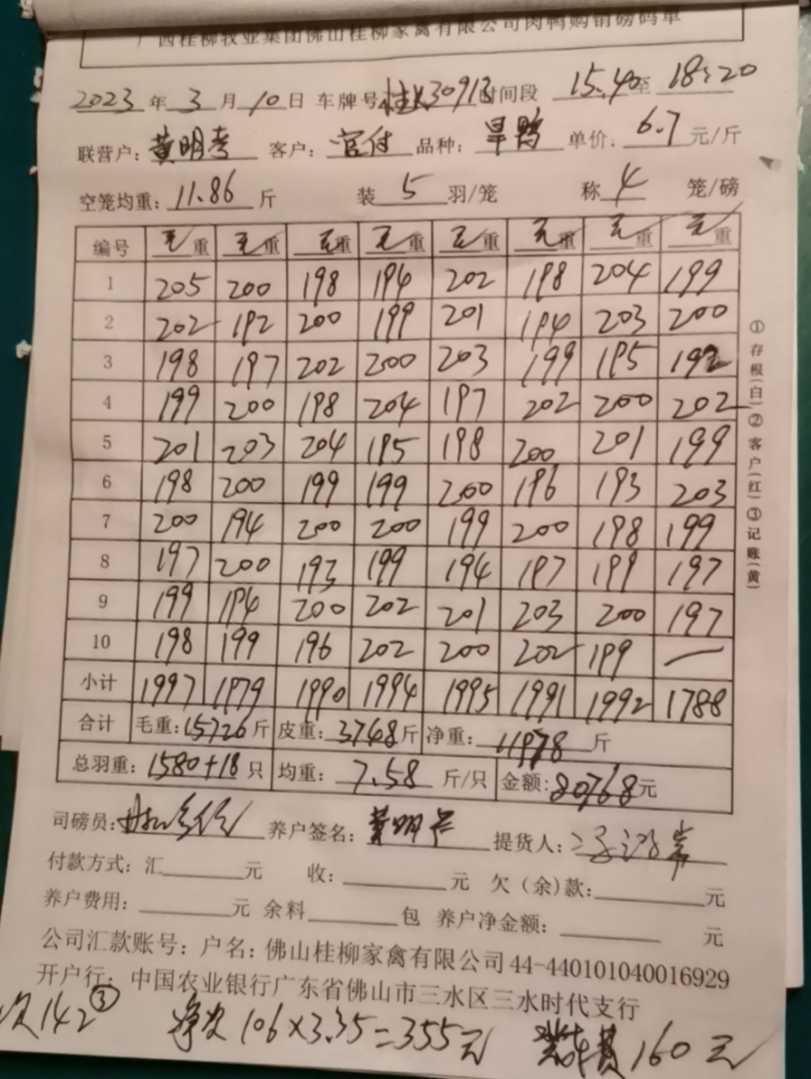 广西桂柳牧业集团佛山桂柳家禽有限公司肉鸭购销磅码单
2023 年 3 月 10 日 车牌号 30913 时间段 15.40 至 18:20
联营户: 黄明 客户: 官付 品种: 旱鸭 单价: 6.7 元/斤
空笼均重: 11.86 斤 装 5 羽/笼 称 4 笼/磅
编号 毛重 毛重 毛重 毛重 毛重 毛重 毛重 毛重
1 205 200 198 194 202 198 204 199
2 202 192 200 199 201 194 203 200
3 198 197 202 200 203 199 195 192
4 199 200 198 204 197 202 200 202
5 201 203 204 195 198 200 201 199
6 198 200 199 199 200 196 193 203
7 200 194 200 200 199 200 198 199
8 197 200 193 199 194 197 199 197
9 199 194 200 202 201 203 200 197
10 198 199 196 202 200 202 199 —
小计 1997 1979 1990 1994 1995 1991 1992 1788
合计 毛重: 15726 斤 皮重: 3748 斤 净重: 11978 斤
总羽重: 1580+18 只 均重: 7.58 斤/只 金额: 80768 元
司磅员: 养户签名: 黄明 提货人:
付款方式: 汇 元 收: 元 欠（余）款: 元
养户费用: 元 余料 包 养户净金额: 元
公司汇款账号: 户名: 佛山桂柳家禽有限公司 44-440101040016929
开户行: 中国农业银行广东省佛山市三水区三水时代支行
次142 ③ 净次 106×3.35=355元 装车费 160元
①存根(白)②客户(红)③记账(黄)